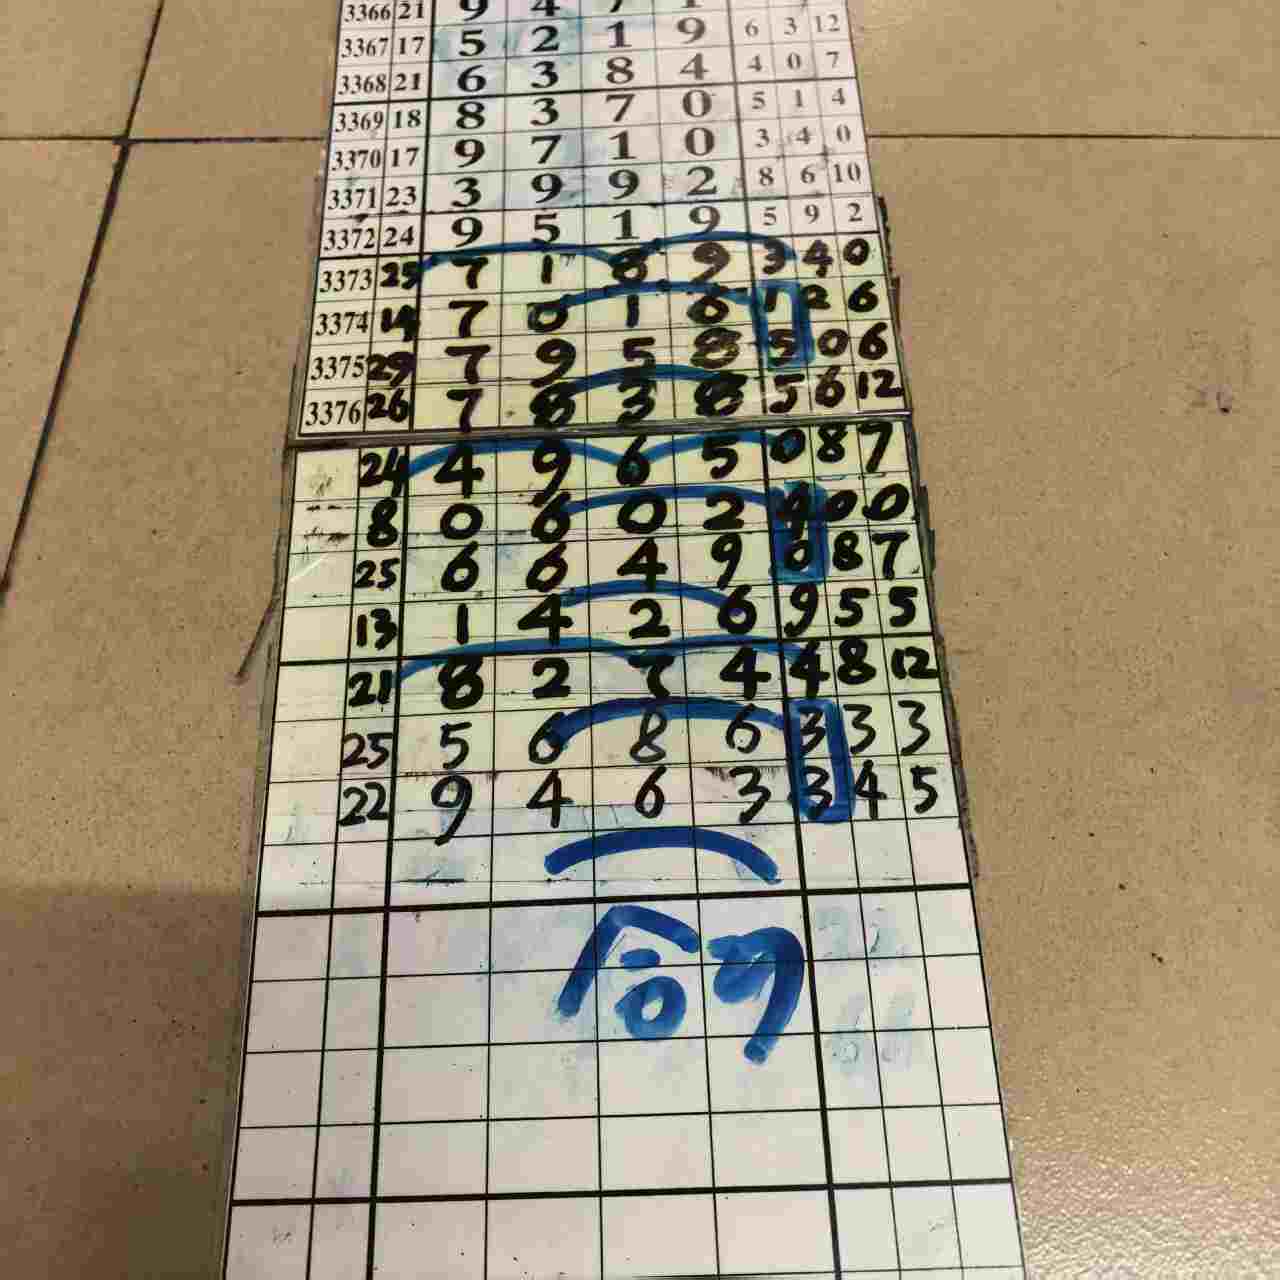 3366 21 9 4 7 1
3367 17 5 2 1 9 6 3 12
3368 21 6 3 8 4 4 0 7
3369 18 8 3 7 0 5 1 4
3370 17 9 7 1 0 3 4 0
3371 23 3 9 9 2 8 6 10
3372 24 9 5 1 9 5 9 2
3373 25 7 1 8 9 3 4 0
3374 14 7 0 1 6 1 2 6
3375 29 7 9 5 8 5 0 6
3376 26 7 8 3 8 5 6 12
24 4 9 6 5 0 8 7
8 0 6 0 2 4 0 0
25 6 6 4 9 0 8 7
13 1 4 2 6 9 5 5
21 8 2 7 4 4 8 12
25 5 6 8 6 3 3 3
22 9 4 6 3 3 4 5
合